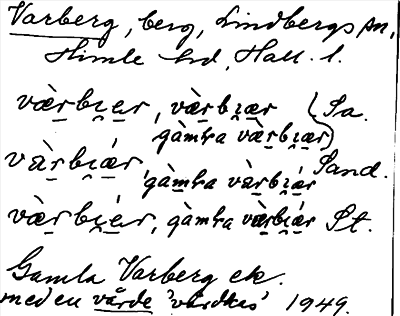 Varberg, berg, Lindbergs sn,
Himle hd, Hall. l.
væ̀rbi̯er, væ̀rbi̯ær
gàmta væ̀rbi̯ær) Sa.
væ̀rbi̯ǽr, gàmta væ̀rbi̯ǽr Sand.
væ̀rbi̯ér, gàmta væ̀rbi̯ǽr St.
Gamla Varberg ek.
med en vårde 'vårdkas' 1949.